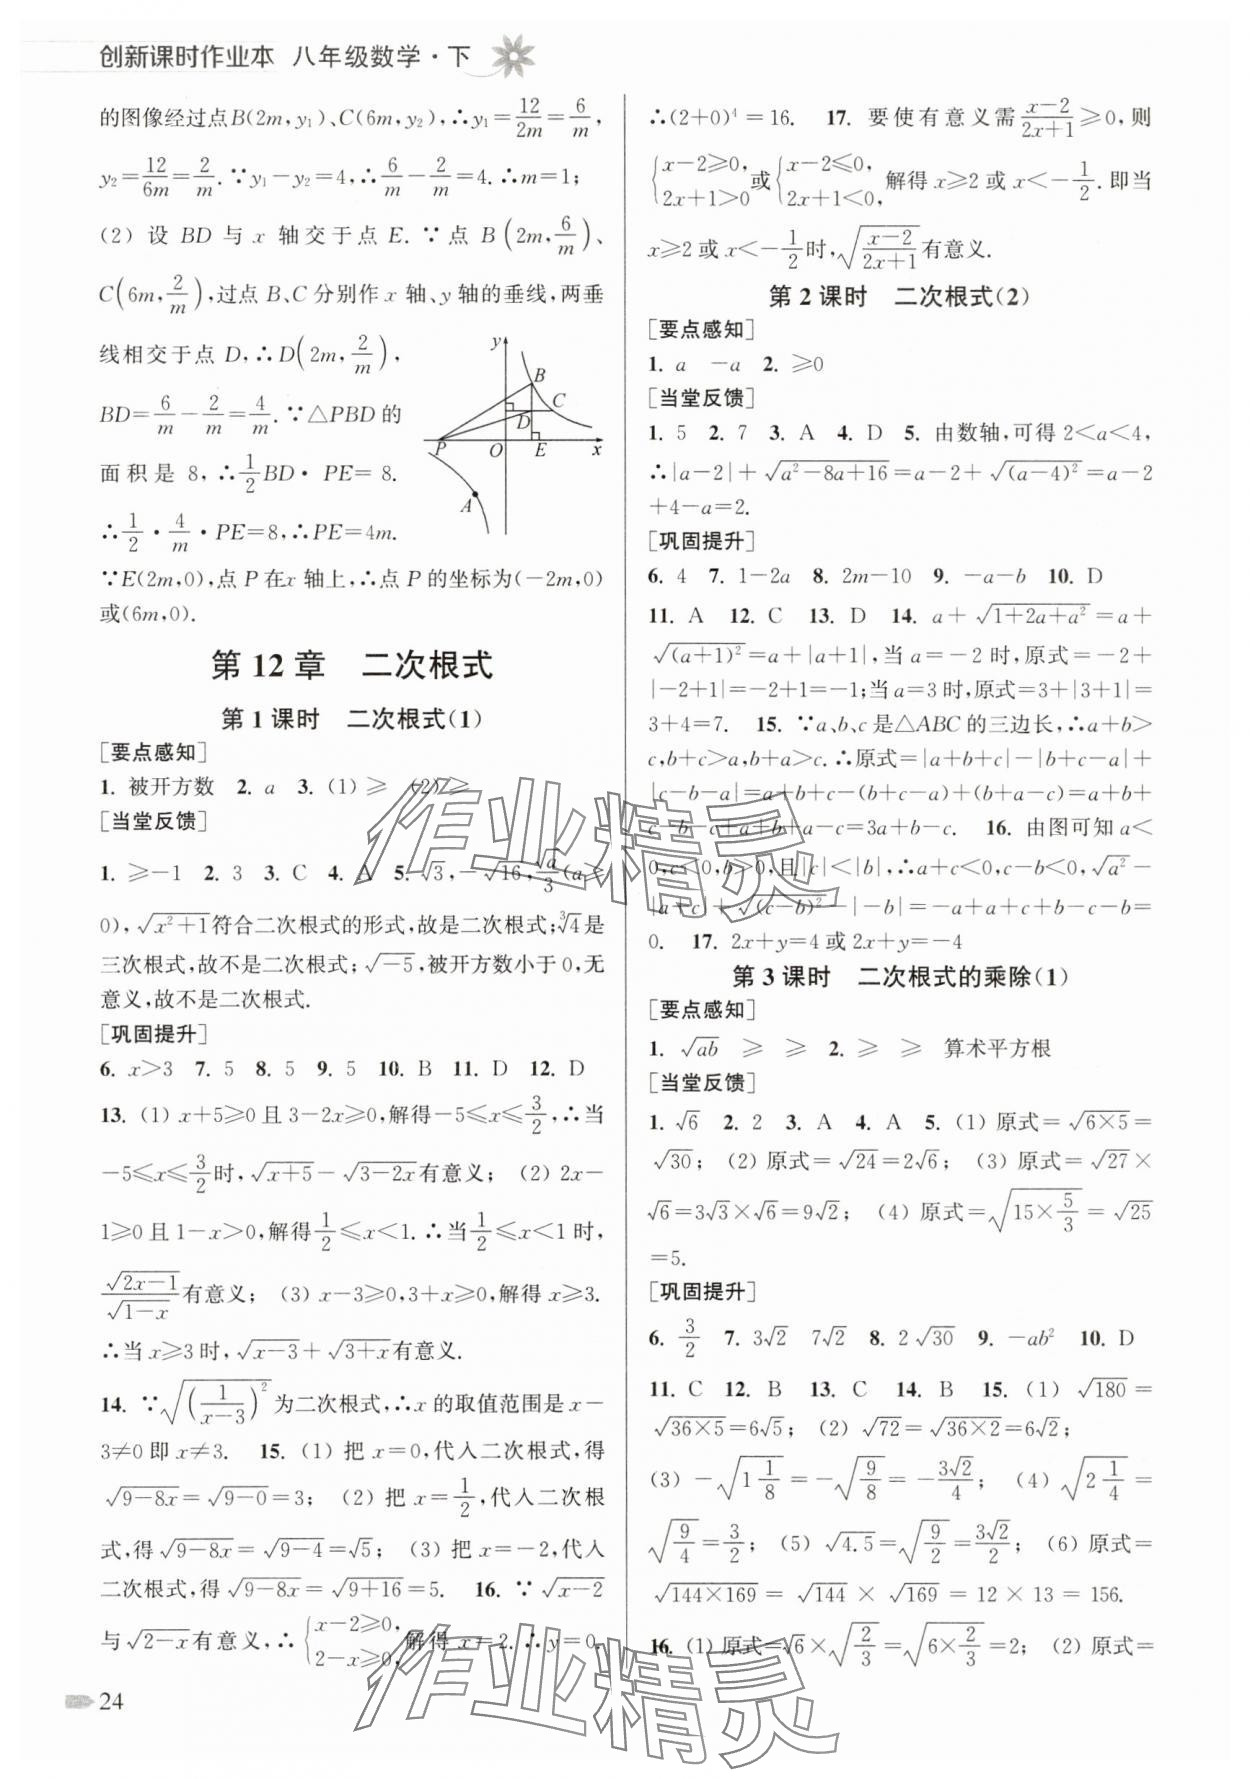 创新课时作业本 八年级数学·下
的图像经过点B(2m,y₁)、C(6m,y₂),∴y₁=12/2m=6/m,
y₂=12/6m=2/m.∵y₁-y₂=4,∴6/m-2/m=4.∴m=1;
(2) 设 BD 与 x 轴交于点 E.∵点 B(2m,6/m)、
C(6m,2/m),过点 B、C 分别作 x 轴、y 轴的垂线,两垂
线相交于点 D,∴D(2m,2/m),
BD=6/m-2/m=4/m.∵△PBD 的
面积是 8,∴1/2BD·PE=8.
∴1/2·4/m·PE=8,∴PE=4m.
∵E(2m,0),点 P 在x 轴上,∴点 P 的坐标为(-2m,0)
或(6m,0).
y
B
C
D
P
O
E
x
A
第 12 章 二次根式
第 1 课时 二次根式(1)
[要点感知]
1. 被开方数 2. a 3. (1) ≥ (2) ≥
[当堂反馈]
1. ≥-1 2. 3 3. C 4. A 5. √3,-√16,√a/3(a≥
0),√(x²+1)符合二次根式的形式,故是二次根式;∛4是
三次根式,故不是二次根式;√-5,被开方数小于 0,无
意义,故不是二次根式.
[巩固提升]
6. x>3 7. 5 8. 5 9. 5 10. B 11. D 12. D
13. (1) x+5≥0 且 3-2x≥0,解得-5≤x≤3/2,∴当
-5≤x≤3/2时,√(x+5)-√(3-2x)有意义; (2) 2x-
1≥0 且 1-x>0,解得1/2≤x<1.∴当1/2≤x<1 时,
√(2x-1)/√(1-x)有意义; (3) x-3≥0,3+x≥0,解得 x≥3.
∴当 x≥3 时,√(x-3)+√(3+x)有意义.
14. ∵√(1/(x-3))²为二次根式,∴x 的取值范围是 x-
3≠0 即 x≠3. 15. (1) 把 x=0,代入二次根式,得
√(9-8x)=√(9-0)=3; (2) 把 x=1/2,代入二次根
式,得√(9-8x)=√(9-4)=√5; (3) 把 x=-2,代入
二次根式,得√(9-8x)=√(9+16)=5. 16. ∵√(x-2)
与√(2-x)有意义,∴{x-2≥0, 2-x≥0, 解得 x=2.∴y=0.
24
∴(2+0)⁴=16. 17. 要使有意义需(x-2)/(2x+1)≥0,则
{x-2≥0, 2x+1>0 或{x-2≤0, 2x+1<0, 解得 x≥2 或 x<-1/2.即当
x≥2 或 x<-1/2时,√((x-2)/(2x+1))有意义.
第 2 课时 二次根式(2)
[要点感知]
1. a -a 2. ≥0
[当堂反馈]
1. 5 2. 7 3. A 4. D 5. 由数轴,可得 2<a<4,
∴|a-2|+√(a²-8a+16)=a-2+√(a-4)²=a-2
+4-a=2.
[巩固提升]
6. 4 7. 1-2a 8. 2m-10 9. -a-b 10. D
11. A 12. C 13. D 14. a+√(1+2a+a²)=a+
√(a+1)²=a+|a+1|,当 a=-2 时,原式=-2+
|-2+1|=-2+1=-1;当 a=3 时,原式=3+|3+1|=
3+4=7. 15. ∵a、b、c 是△ABC 的三边长,∴a+b>
c,b+c>a,b+a>c.∴原式=|a+b+c|-|b+c-a|+
|c-b-a|=a+b+c-(b+c-a)+(b+a-c)=a+b+
c-b-c+a+b+a-c=3a+b-c. 16. 由图可知 a<
0,c<0,b>0,且|c|<|b|,∴a+c<0,c-b<0,√a²-
|a+c|+√(c-b)²-|-b|=-a+a+c+b-c-b=
0. 17. 2x+y=4 或 2x+y=-4
第 3 课时 二次根式的乘除(1)
[要点感知]
1. √ab ≥ ≥ 2. ≥ ≥ 算术平方根
[当堂反馈]
1. √6 2. 2 3. A 4. A 5. (1) 原式=√(6×5)=
√30; (2) 原式=√24=2√6; (3) 原式=√27×
√6=3√3×√6=9√2; (4) 原式=√(15×5/3)=√25
=5.
[巩固提升]
6. 3/2 7. 3√2 7√2 8. 2√30 9. -ab² 10. D
11. C 12. B 13. C 14. B 15. (1) √180=
√(36×5)=6√5; (2) √72=√(36×2)=6√2;
(3) -√(1 1/8)=-√(9/8)=-3√2/4; (4) √(2 1/4)=
√(9/4)=3/2; (5) √4.5=√(9/2)=3√2/2; (6) 原式=
√(144×169)=√144×√169=12×13=156.
16. (1) 原式=√6×√(2/3)=√(6×2/3)=2; (2) 原式=
作业精灵
作业精灵